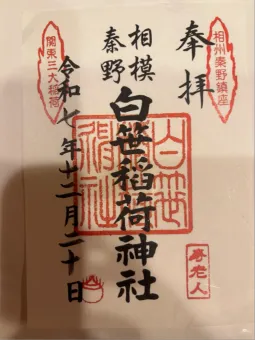 相州秦野鎮座
奉拝
相模
秦野
白笹稲荷神社
寿老人
関東三大稲荷
令和七年十二月二十日